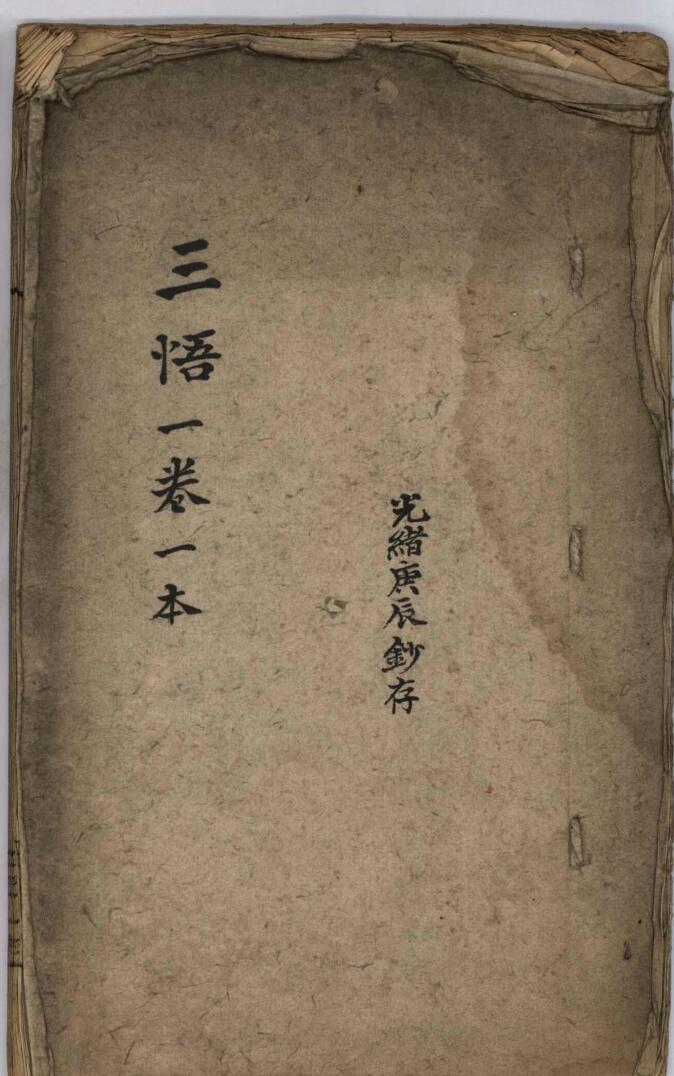 光緒庚辰鈔存
三悟一卷一本